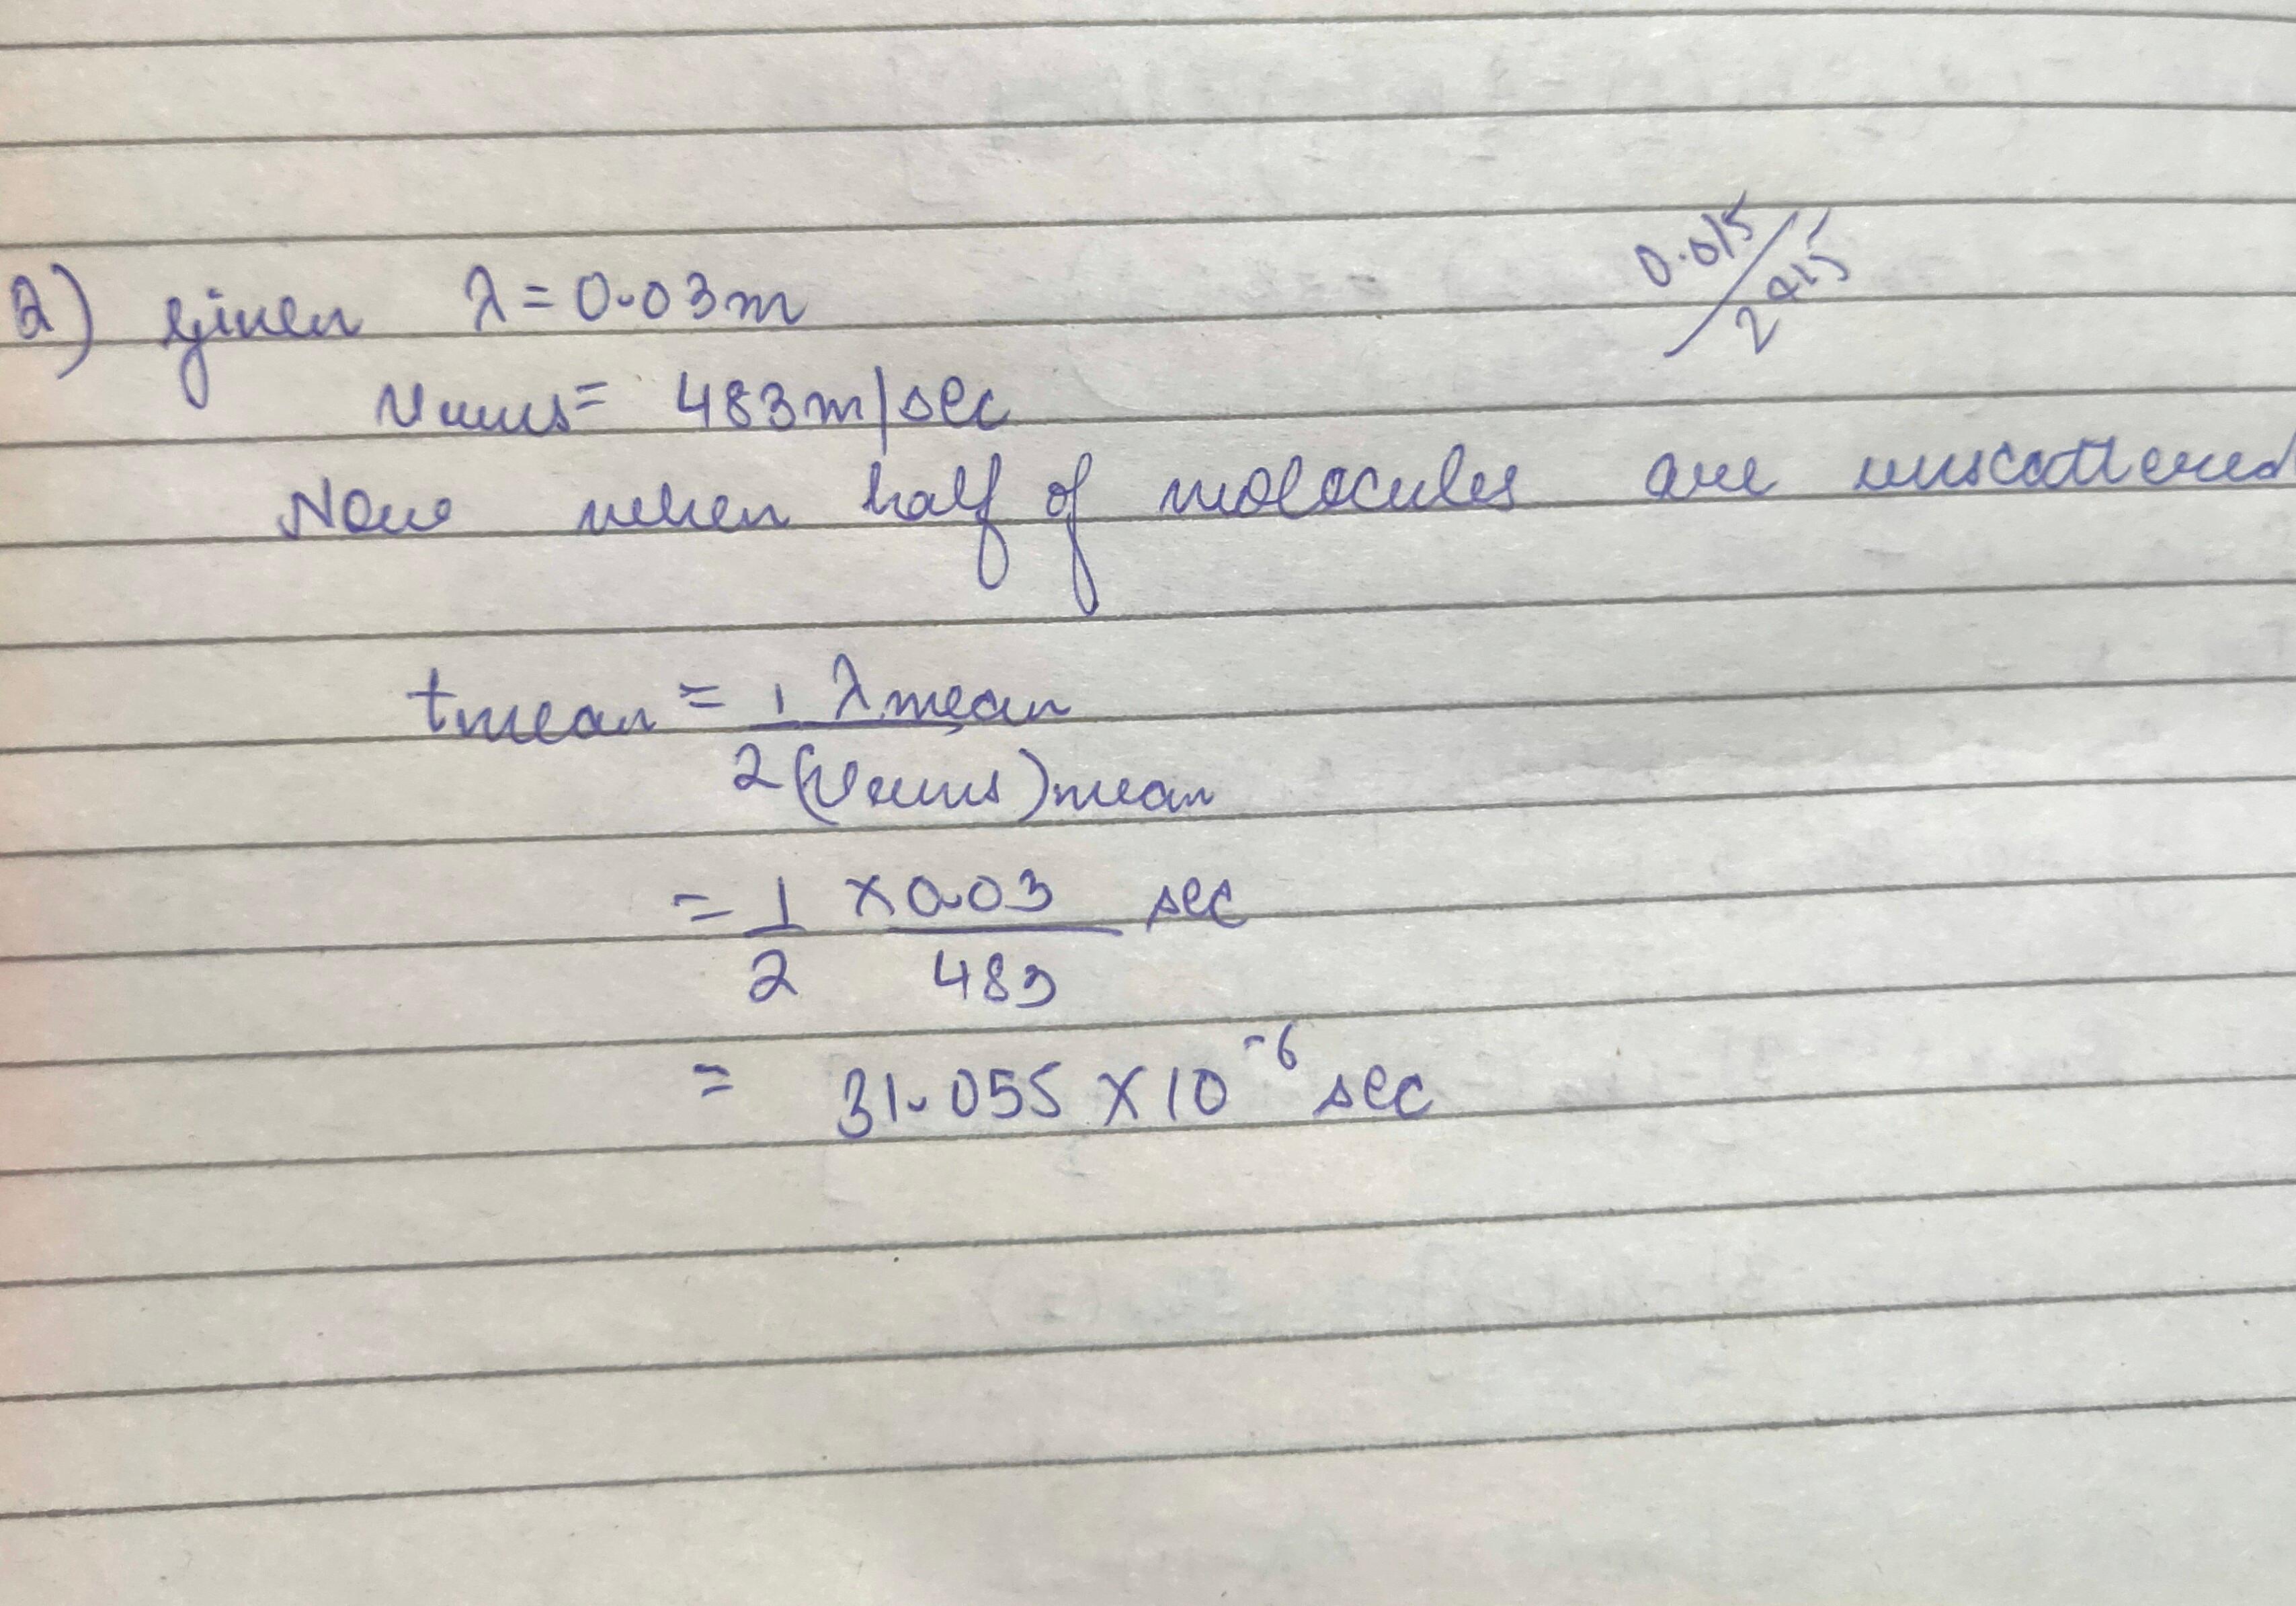 0.015/2415
2) given λ = 0.03m
vrms = 483m/sec
Now when half of molecules are unscattered
tmean = 1 λmean / 2(vrms)mean
= 1/2 × 0.03/483 sec
= 31.055 × 10⁻⁶ sec